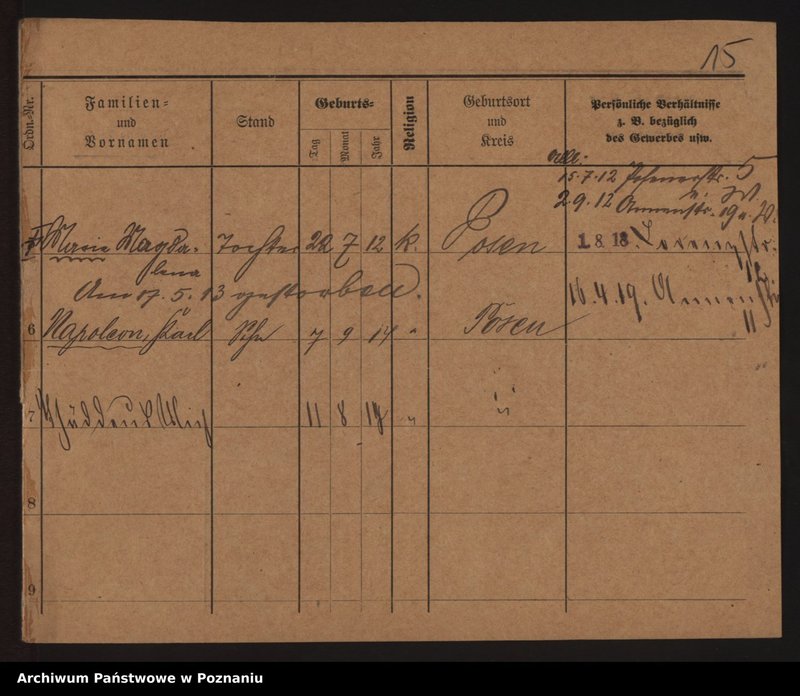 15
Ordn.-Nr.
Familien-
und
Vornamen
Stand
Geburts-
Tag
Monat
Jahr
Religion
Geburtsort
und
Kreis
Persönliche Verhältnisse
z. B. bezüglich
des Gewerbes usw.
15.7.12 5
2.9.12 Annenstr. 19
Maria Magda- Tochter 22 7 12 k. Posen 1.8.18.
lena
Am 17.5.13 gestorben. 16.4.19. Annen
6 Napoleon, Karl Sohn 7 9 14 " Posen 11
7 11 8 19 " "
8
9
Archiwum Państwowe w Poznaniu